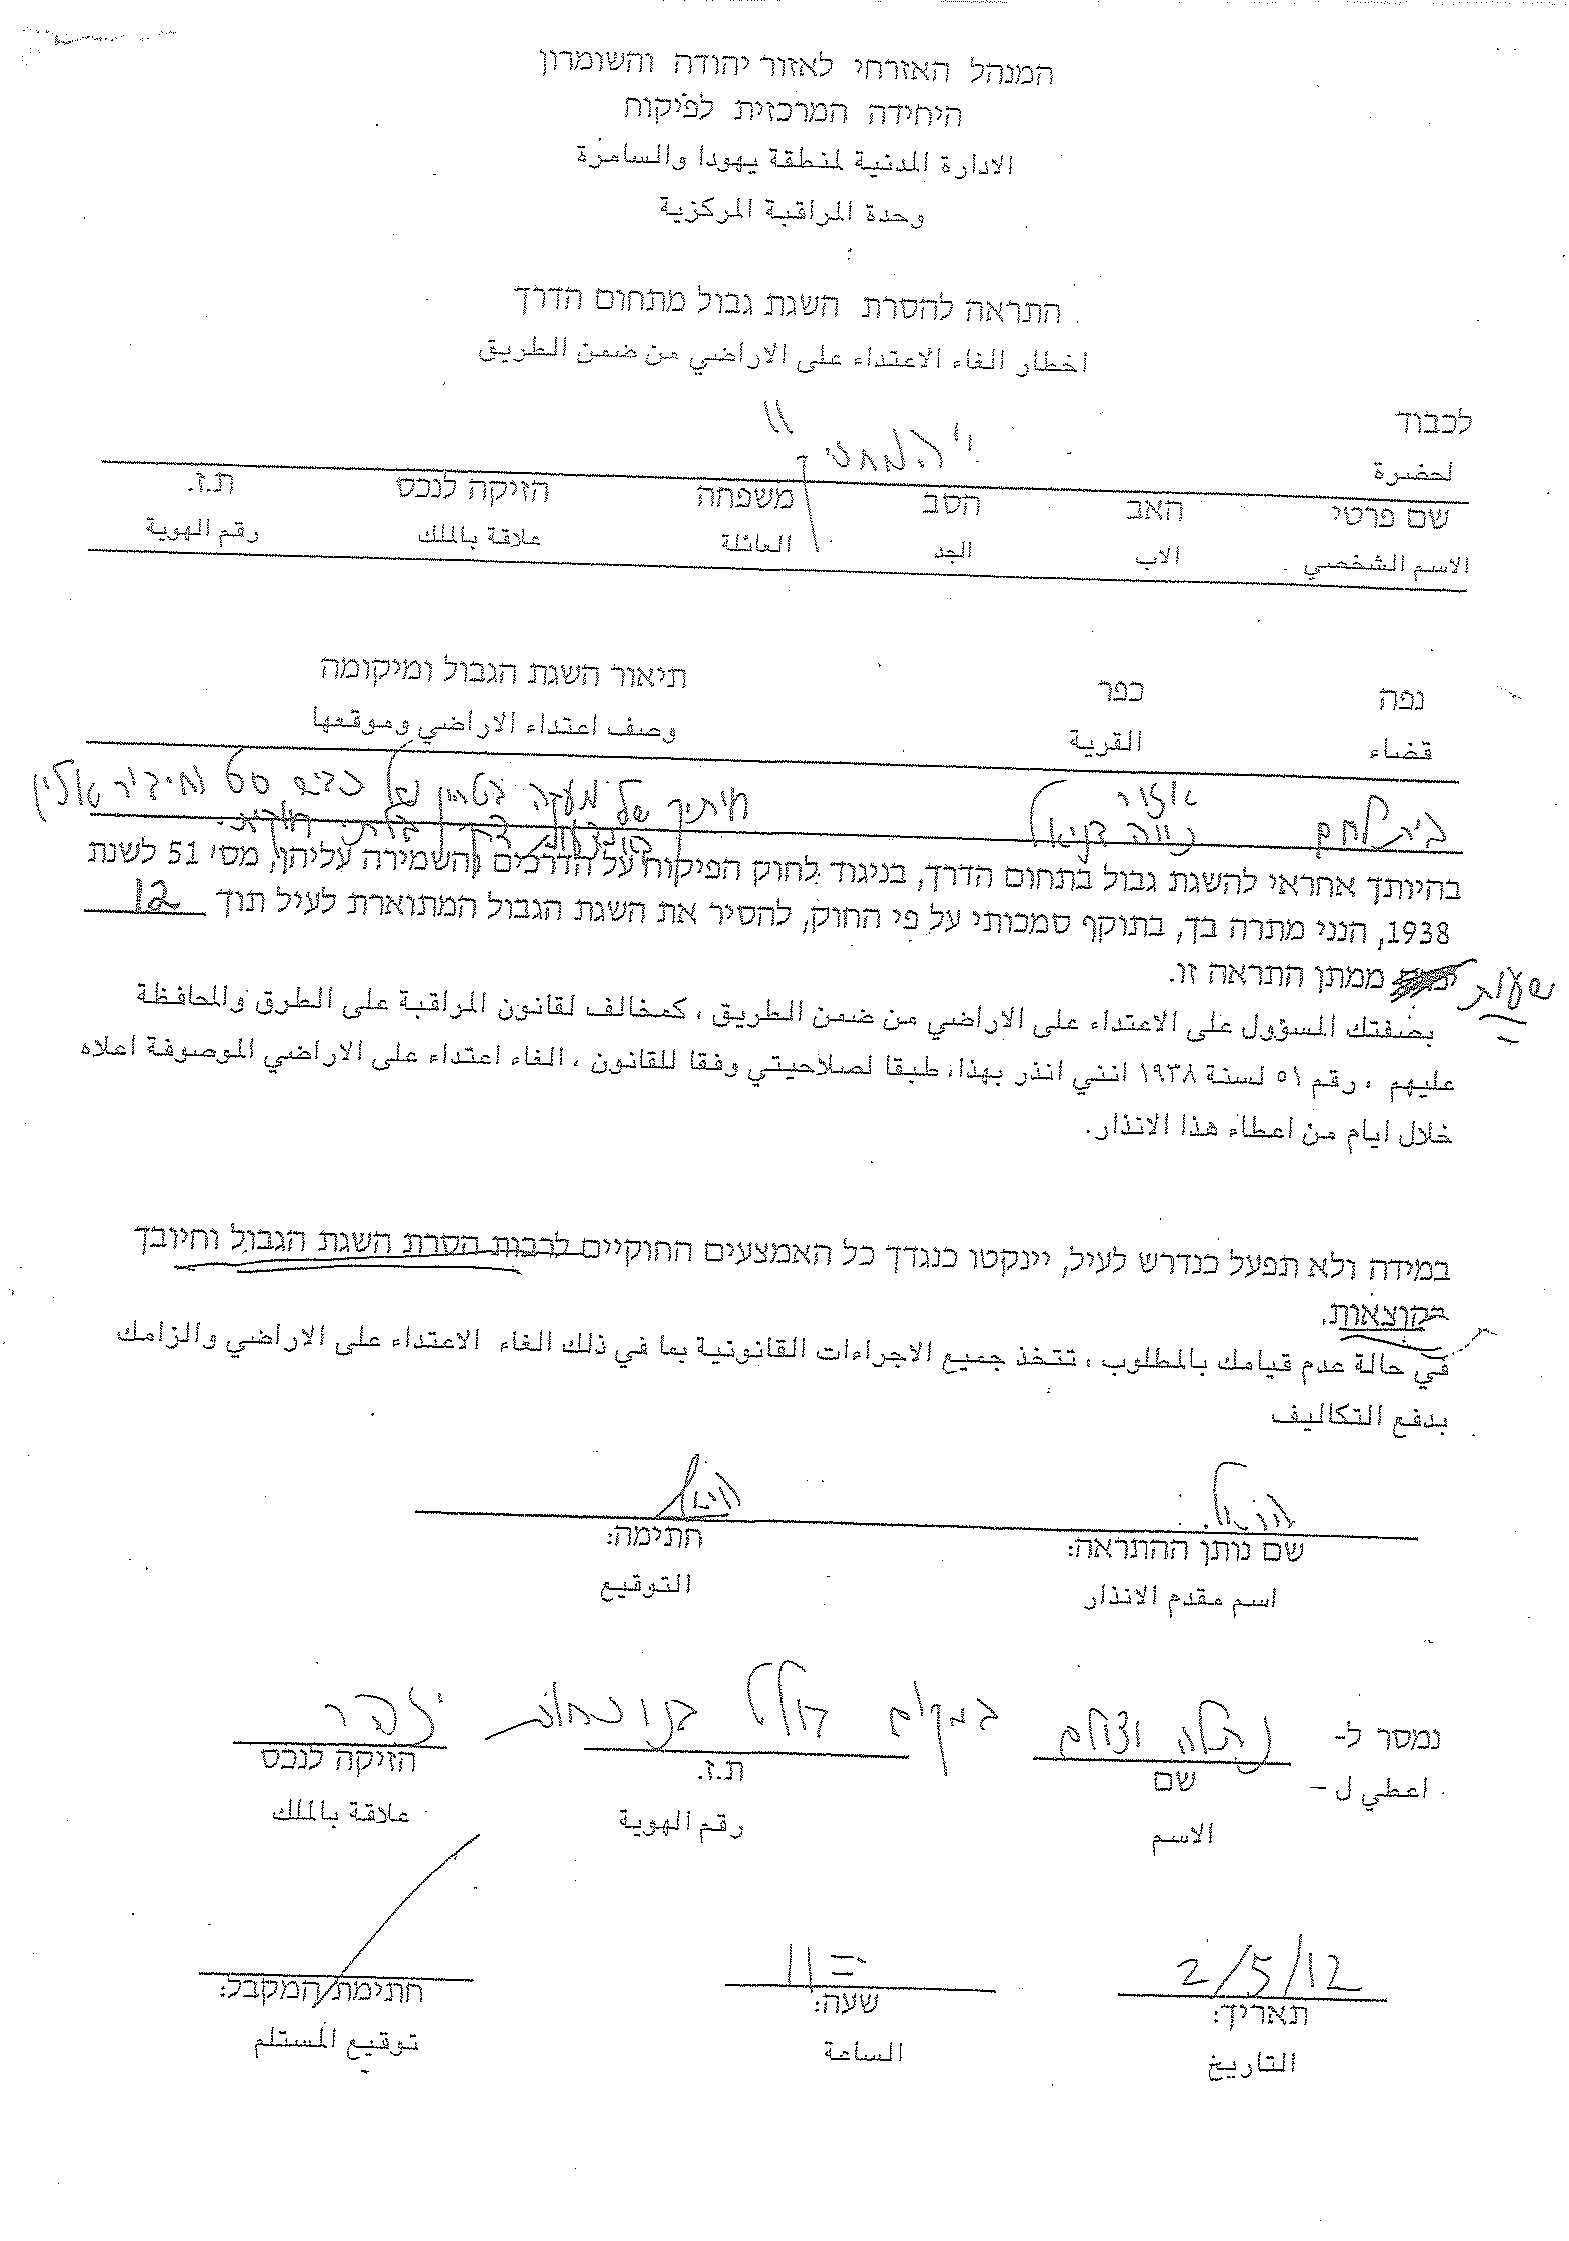 המנהל האזרחי לאזור יהודה והשומרון
היחידה המרכזית לפיקוח
الادارة المدنية لمنطقة يهودا والسامرة
وحدة المراقبة المركزية
התראה להסרת השגת גבול מתחום הדרך
اخطار الغاء الاعتداء على الاراضي من ضمن الطريق
לכבוד
لحضرة
שם פרטי האב הסב משפחה הזיקה לנכס ת.ז.
الاسم الشخصي الاب الجد العائلة علاقة بالملك رقم الهوية
נפה כפר תיאור השגת הגבול ומיקומה
قضاء القرية وصف اعتداء الاراضي وموقعها
אזור
בית לחם נווה דניאל
בהיותך אחראי להשגת גבול בתחום הדרך, בניגוד לחוק הפיקוח על הדרכים והשמירה עליהן, מסי 51 לשנת
1938, הנני מתרה בך, בתוקף סמכותי על פי החוק, להסיר את השגת הגבול המתוארת לעיל תוך 12
שעות ממתן התראה זו.
بصفتك المسؤول على الاعتداء على الاراضي من ضمن الطريق ، كمخالف لقانون المراقبة على الطرق والمحافظة
عليهم ، رقم ٥١ لسنة ١٩٣٨ انني انذر بهذا، طبقا لصلاحيتي وفقا للقانون ، الغاء اعتداء على الاراضي الموصوفة اعلاه
خلال ايام من اعطاء هذا الانذار.
במידה ולא תפעל כנדרש לעיל, יינקטו כנגדך כל האמצעים החוקיים לרבות הסרת השגת הגבול וחיובך
בהוצאות.
في حالة عدم قيامك بالمطلوب ، تتخذ جميع الاجراءات القانونية بما في ذلك الغاء الاعتداء على الاراضي والزامك
بدفع التكاليف
שם נותן ההתראה: חתימה:
اسم مقدم الانذار التوقيع
נמסר ל- נתלה וצולם במקום
שם ת.ז. הזיקה לנכס
اعطي ل -
الاسم رقم الهوية علاقة بالملك
2/5/12 11=
תאריך: שעה: חתימת המקבל:
التاريخ الساعة توقيع المستلم